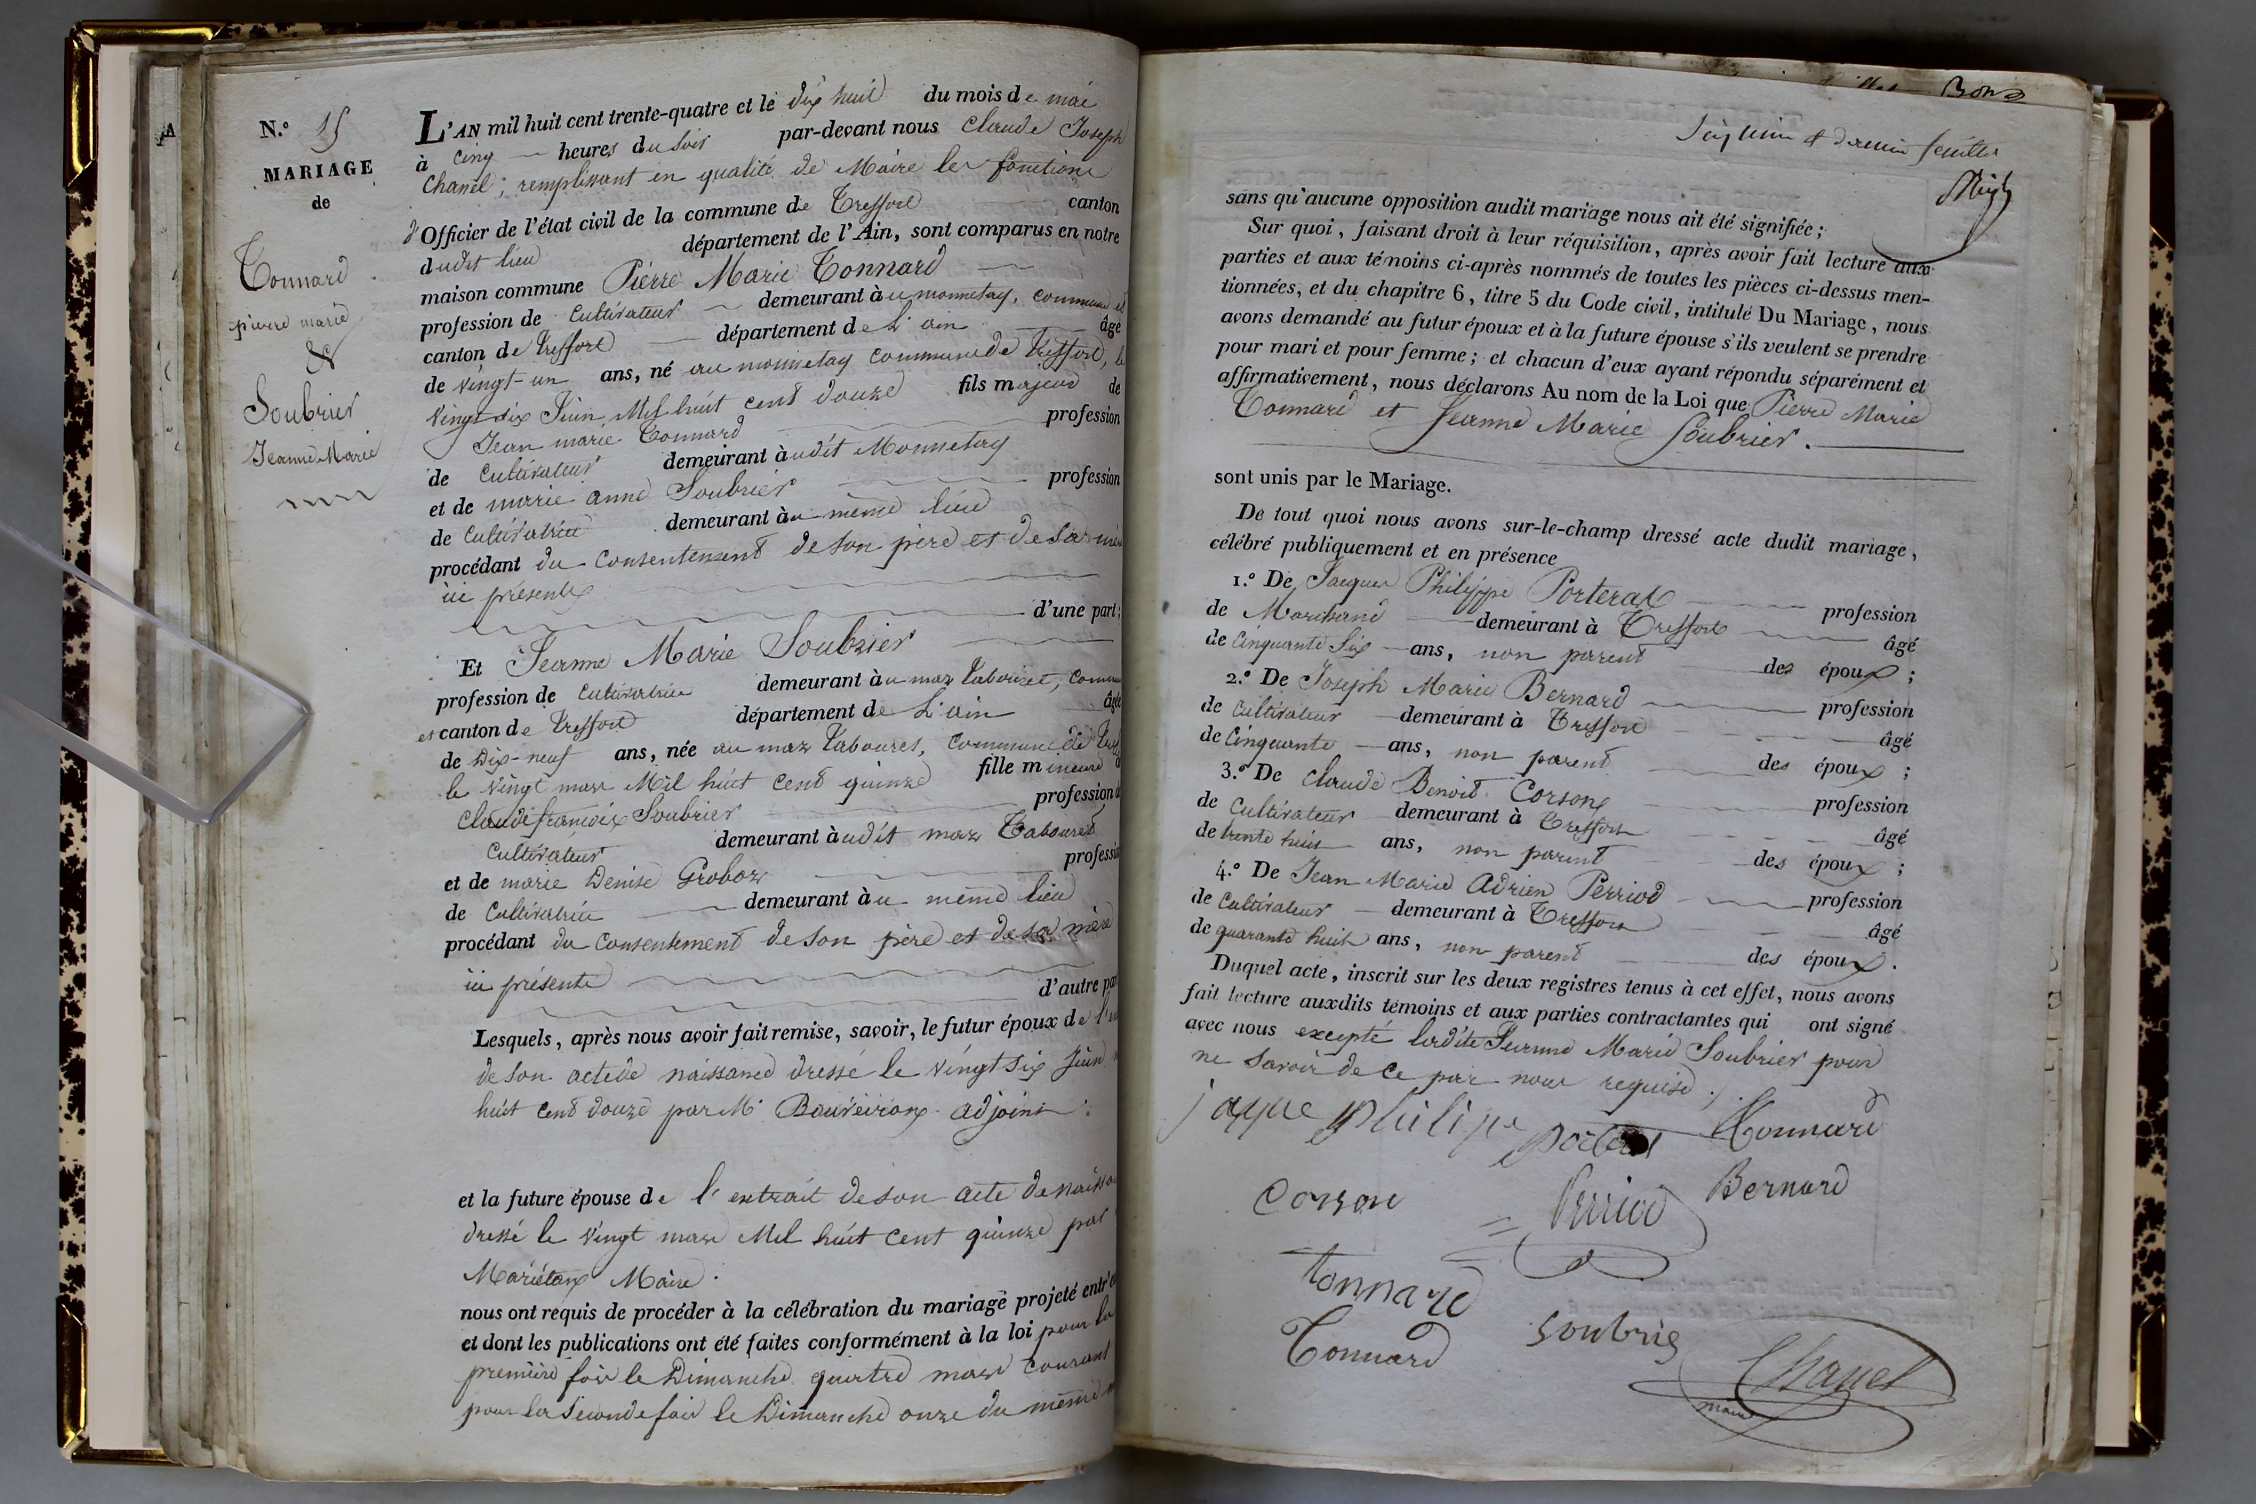 N.º 15
MARIAGE
de
Tonnard
pierre marie
&
Soubrier
Jeanne Marie
L'AN mil huit cent trente-quatre et le dix huit du mois de mai
à cinq heures du soir par-devant nous Claude Joseph
Chanel, remplissant en qualité de Maire les fonctions
d'Officier de l'état civil de la commune de Treffort canton
dudit lieu département de l'Ain, sont comparus en notre
maison commune Pierre Marie Tonnard
profession de Cultivateur demeurant au monnetay, commune et
canton de Treffort département de L'ain âgé
de vingt-un ans, né au monnetay commune de Treffort, le
vingt six Juin Mil huit cent douze fils majeur de
Jean marie Tonnard profession
de Cultivateur demeurant audit Monnetay
et de marie anne Soubrier profession
de Cultivatrice demeurant au même lieu
procédant du Consentement de son père et de sa mère
ici présents
d'une part;
Et Jeanne Marie Soubrier
profession de Cultivatrice demeurant au maz Tabouret, commune
et canton de Treffort département de L'ain âgée
de Dix-neuf ans, née au maz Tabouret, commune de Treff
le vingt mars Mil huit cent quinze fille mineure
Claude françois Soubrier profession d
Cultivateur demeurant audit maz Tabouret
et de marie Denise Groboz profession
de Cultivatrice demeurant au même lieu
procédant du Consentement de son père et de sa mère
ici présents
d'autre par
Lesquels, après nous avoir fait remise, savoir, le futur époux de l'ex
de son acte de naissance dressé le vingt six Juin
huit cent douze par Mr adjoint
et la future épouse de l'extrait de son acte de naissa
dressé le vingt mars Mil huit cent quinze par
Mariétong Maire.
nous ont requis de procéder à la célébration du mariage projeté entr'e
et dont les publications ont été faites conformément à la loi pour la
première fois le Dimanche quatre mars courant
pour la seconde fois le Dimanche onze du même m
dernier feuillet
sans qu'aucune opposition audit mariage nous ait été signifiée;
Sur quoi, faisant droit à leur réquisition, après avoir fait lecture aux
parties et aux témoins ci-après nommés de toutes les pièces ci-dessus men-
tionnées, et du chapitre 6, titre 5 du Code civil, intitulé Du Mariage, nous
avons demandé au futur époux et à la future épouse s'ils veulent se prendre
pour mari et pour femme; et chacun d'eux ayant répondu séparément et
affirmativement, nous déclarons Au nom de la Loi que Pierre Marie
Tonnard et Jeanne Marie Soubrier.
sont unis par le Mariage.
De tout quoi nous avons sur-le-champ dressé acte dudit mariage,
célébré publiquement et en présence
1.º De Jacques Philippe Porterat profession
de Marchand demeurant à Treffort âgé
de Cinquante Six ans, non parent des époux;
2.º De Joseph Marie Bernard profession
de Cultivateur demeurant à Treffort âgé
de Cinquante ans, non parent des époux;
3.º De Claude Benoit Corson profession
de Cultivateur demeurant à Treffort âgé
de trente huit ans, non parent des époux;
4.º De Jean Marie Adrien Perriod profession
de Cultivateur demeurant à Treffort âgé
de quarante huit ans, non parent des époux.
Duquel acte, inscrit sur les deux registres tenus à cet effet, nous avons
fait lecture auxdits témoins et aux parties contractantes qui ont signé
avec nous excepté ladite Jeanne Marie Soubrier pour
ne savoir de ce par nous requise.
jaque philipe porterat Tonnard
Corson Perriod Bernard
tonnard
Tonnard Soubrie Chanel
maire